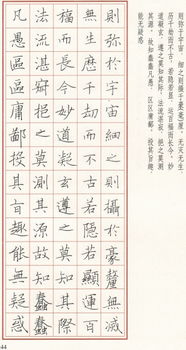 则弥于宇宙 细之则摄于毫厘 无灭无生
历千劫而不古 若隐若显 运百福而长今 妙
道凝玄 遵之莫知其际 法流湛寂 挹之莫测
其源 故知蠢蠢凡愚 区区庸鄙 投其旨趣
能无疑惑
則彌於宇宙細之則攝於豪釐無滅
無生歷千劫而不古若隱若顯運百
福而長今妙道凝玄遵之莫知其際
法流湛寂挹之莫測其源故知蠢蠢
凡愚區區庸鄙投其旨趣能無疑惑
44